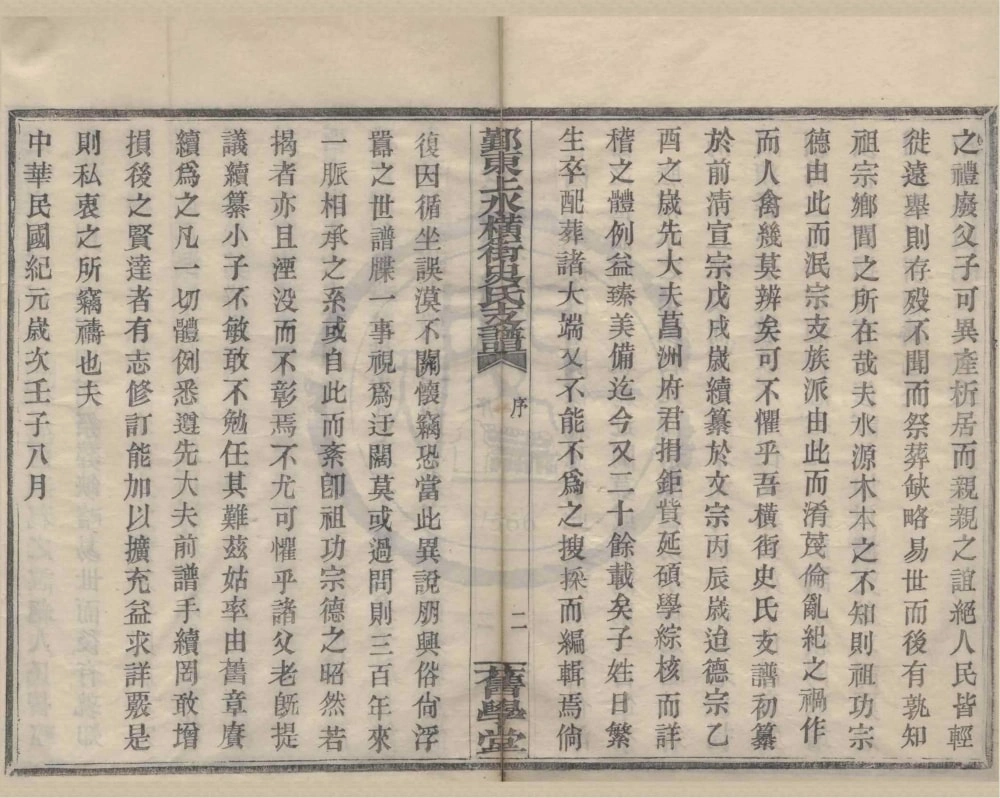 之禮廢父子可異產析居而親親之誼絕人民皆輕
徙遠舉則存歿不聞而祭葬缺略易世而後有孰知
祖宗鄉閭之所在哉夫水源木本之不知則祖功宗
德由此而泯宗支族派由此而淆蔑倫亂紀之禍作
而人禽幾莫辨矣可不懼乎吾橫街史氏支譜初纂
於前清宣宗戊戌歲續纂於文宗丙辰歲迨德宗乙
酉之歲先大夫菖洲府君捐鉅貲延碩學綜核而詳
稽之體例益臻美備迄今又二十餘載矣子姓日繁
生卒配葬諸大端又不能不爲之搜採而編輯焉倘
鄞東上水橫街史氏支譜 序 二 舊學堂
復因循坐誤漠不關懷竊恐當此異說朋興俗尙浮
囂之世譜牒一事視爲迂闊莫或過問則三百年來
一脈相承之系或自此而紊卽祖功宗德之昭然若
揭者亦且湮没而不彰焉不尤可懼乎諸父老旣提
議續纂小子不敏敢不勉任其難茲姑率由舊章賡
續爲之凡一切體例悉遵先大夫前譜手續罔敢增
損後之賢達者有志修訂能加以擴充益求詳覈是
則私衷之所竊禱也夫
中華民國紀元歲次壬子八月